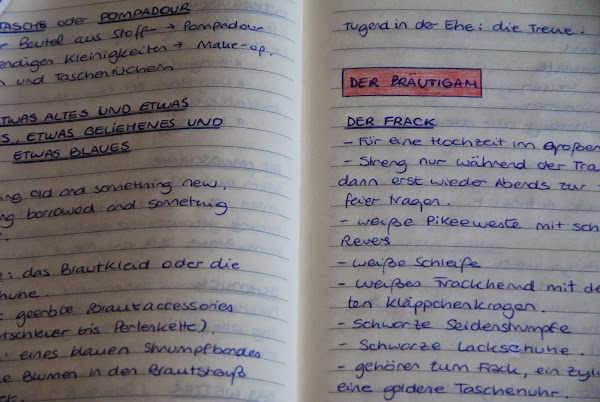 TASCHE oder POMPADOUR
Beutel aus Stoff → Pompadour
endigen Kleinigkeiten → Make-op.
n und Taschentüchern
ETWAS ALTES UND ETWAS
S, ETWAS GELIEHENES UND
ETWAS BLAUES
ing old and something new,
ng borrowed and something
e: das Brautkleid oder die
huhe.
: geerbte Brautaccessories
utschleier bis Perlenkette),
: eines blauen Strumpfbandes
e Blumen in den Brautstrauß
Tugend in der Ehe: die Treue.
DER BRÄUTIGAM
DER FRACK
- Für eine Hochzeit im Großen
- Streng nur während der Tra
dann erst wieder Abends zur
feier tragen.
- weiße Pikeeweste mit sch
Revers
- weiße Schleife
- weißes Frackhemd mit de
ten Kläppchenkragen.
- Schwarze Seidenstrümpfe
- Schwarze Lackschuhe.
- gehören zum Frack, ein Zyli
eine goldene Taschenuhr.